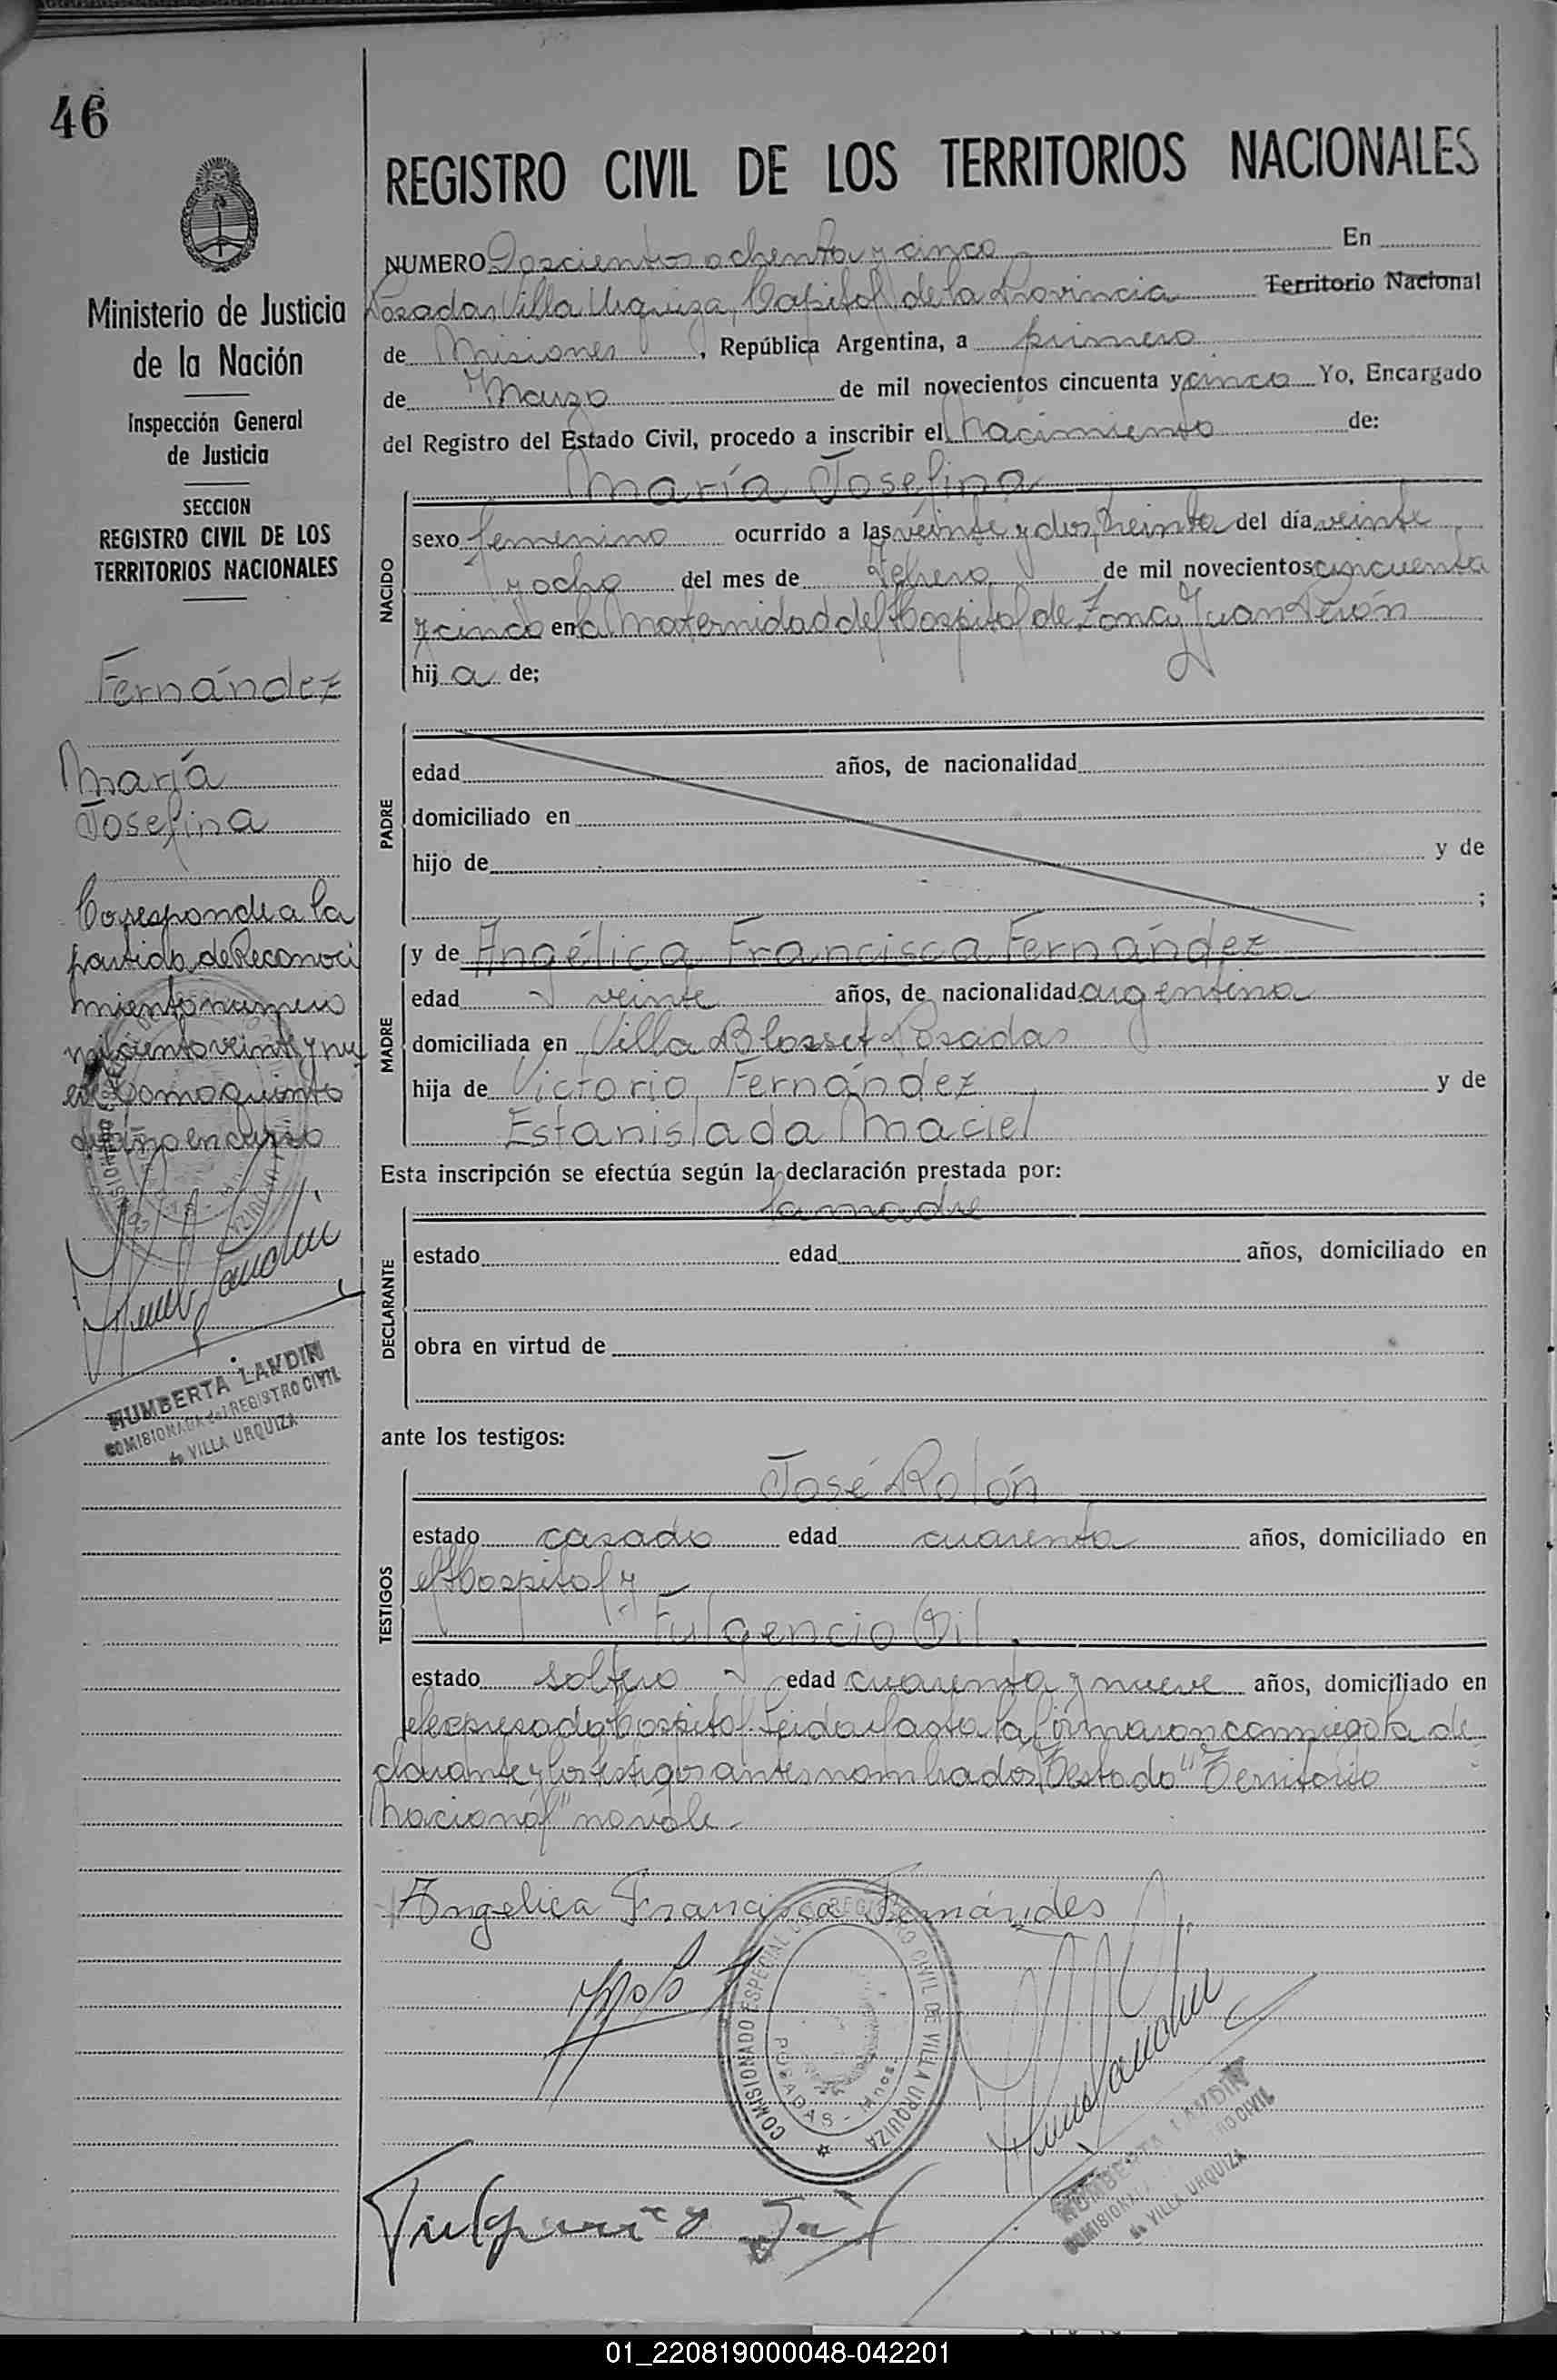 46
Ministerio de Justicia
de la Nación
Inspección General
de Justicia
SECCION
REGISTRO CIVIL DE LOS
TERRITORIOS NACIONALES
Fernández
María
Josefina
Corresponde a la
partida de Reconoci
miento numero
mil ciento veinte y nu
eve tomo quinto
del año en curso
HUMBERTA LANDIN
COMISIONADA del REGISTRO CIVIL
de VILLA URQUIZA
REGISTRO CIVIL DE LOS TERRITORIOS NACIONALES
NUMERO Doscientos ochenta y cinco En
Posadas Villa Urquiza, Capital de la Provincia Territorio Nacional
de Misiones, República Argentina, a primero
de Marzo de mil novecientos cincuenta y cinco Yo, Encargado
del Registro del Estado Civil, procedo a inscribir el Nacimiento de:
María Josefina
NACIDO
sexo femenino ocurrido a las veinte y dos, treinta del día veinte
y ocho del mes de Febrero de mil novecientos cincuenta
y cinco en la Maternidad del Hospital de Zona Juan Perón
hij a de;
PADRE
edad años, de nacionalidad
domiciliado en
hijo de y de
;
MADRE
y de Angélica Francisca Fernández
edad veinte años, de nacionalidad argentina
domiciliada en Villa Blosset Posadas
hija de Victorio Fernández y de
Estanislada Maciel
Esta inscripción se efectúa según la declaración prestada por:
la madre
DECLARANTE
estado edad años, domiciliado en
obra en virtud de
ante los testigos:
José Rolón
TESTIGOS
estado casado edad cuarenta años, domiciliado en
el Hospital y
Fulgencio Gil
estado soltero edad cuarenta y nueve años, domiciliado en
el expresado Hospital. Leida el acta la firmaron conmigo la de
clarante y los testigos antes nombrados, Testado "Territorio
Nacional" no vale.
Angelica Francisca Fernándes
COMISIONADO ESPECIAL DEL REGISTRO CIVIL DE VILLA URQUIZA
POSADAS - Mnes.
HUMBERTA LANDIN
COMISIONADA REGISTRO CIVIL
de VILLA URQUIZA
01_220819000048-042201